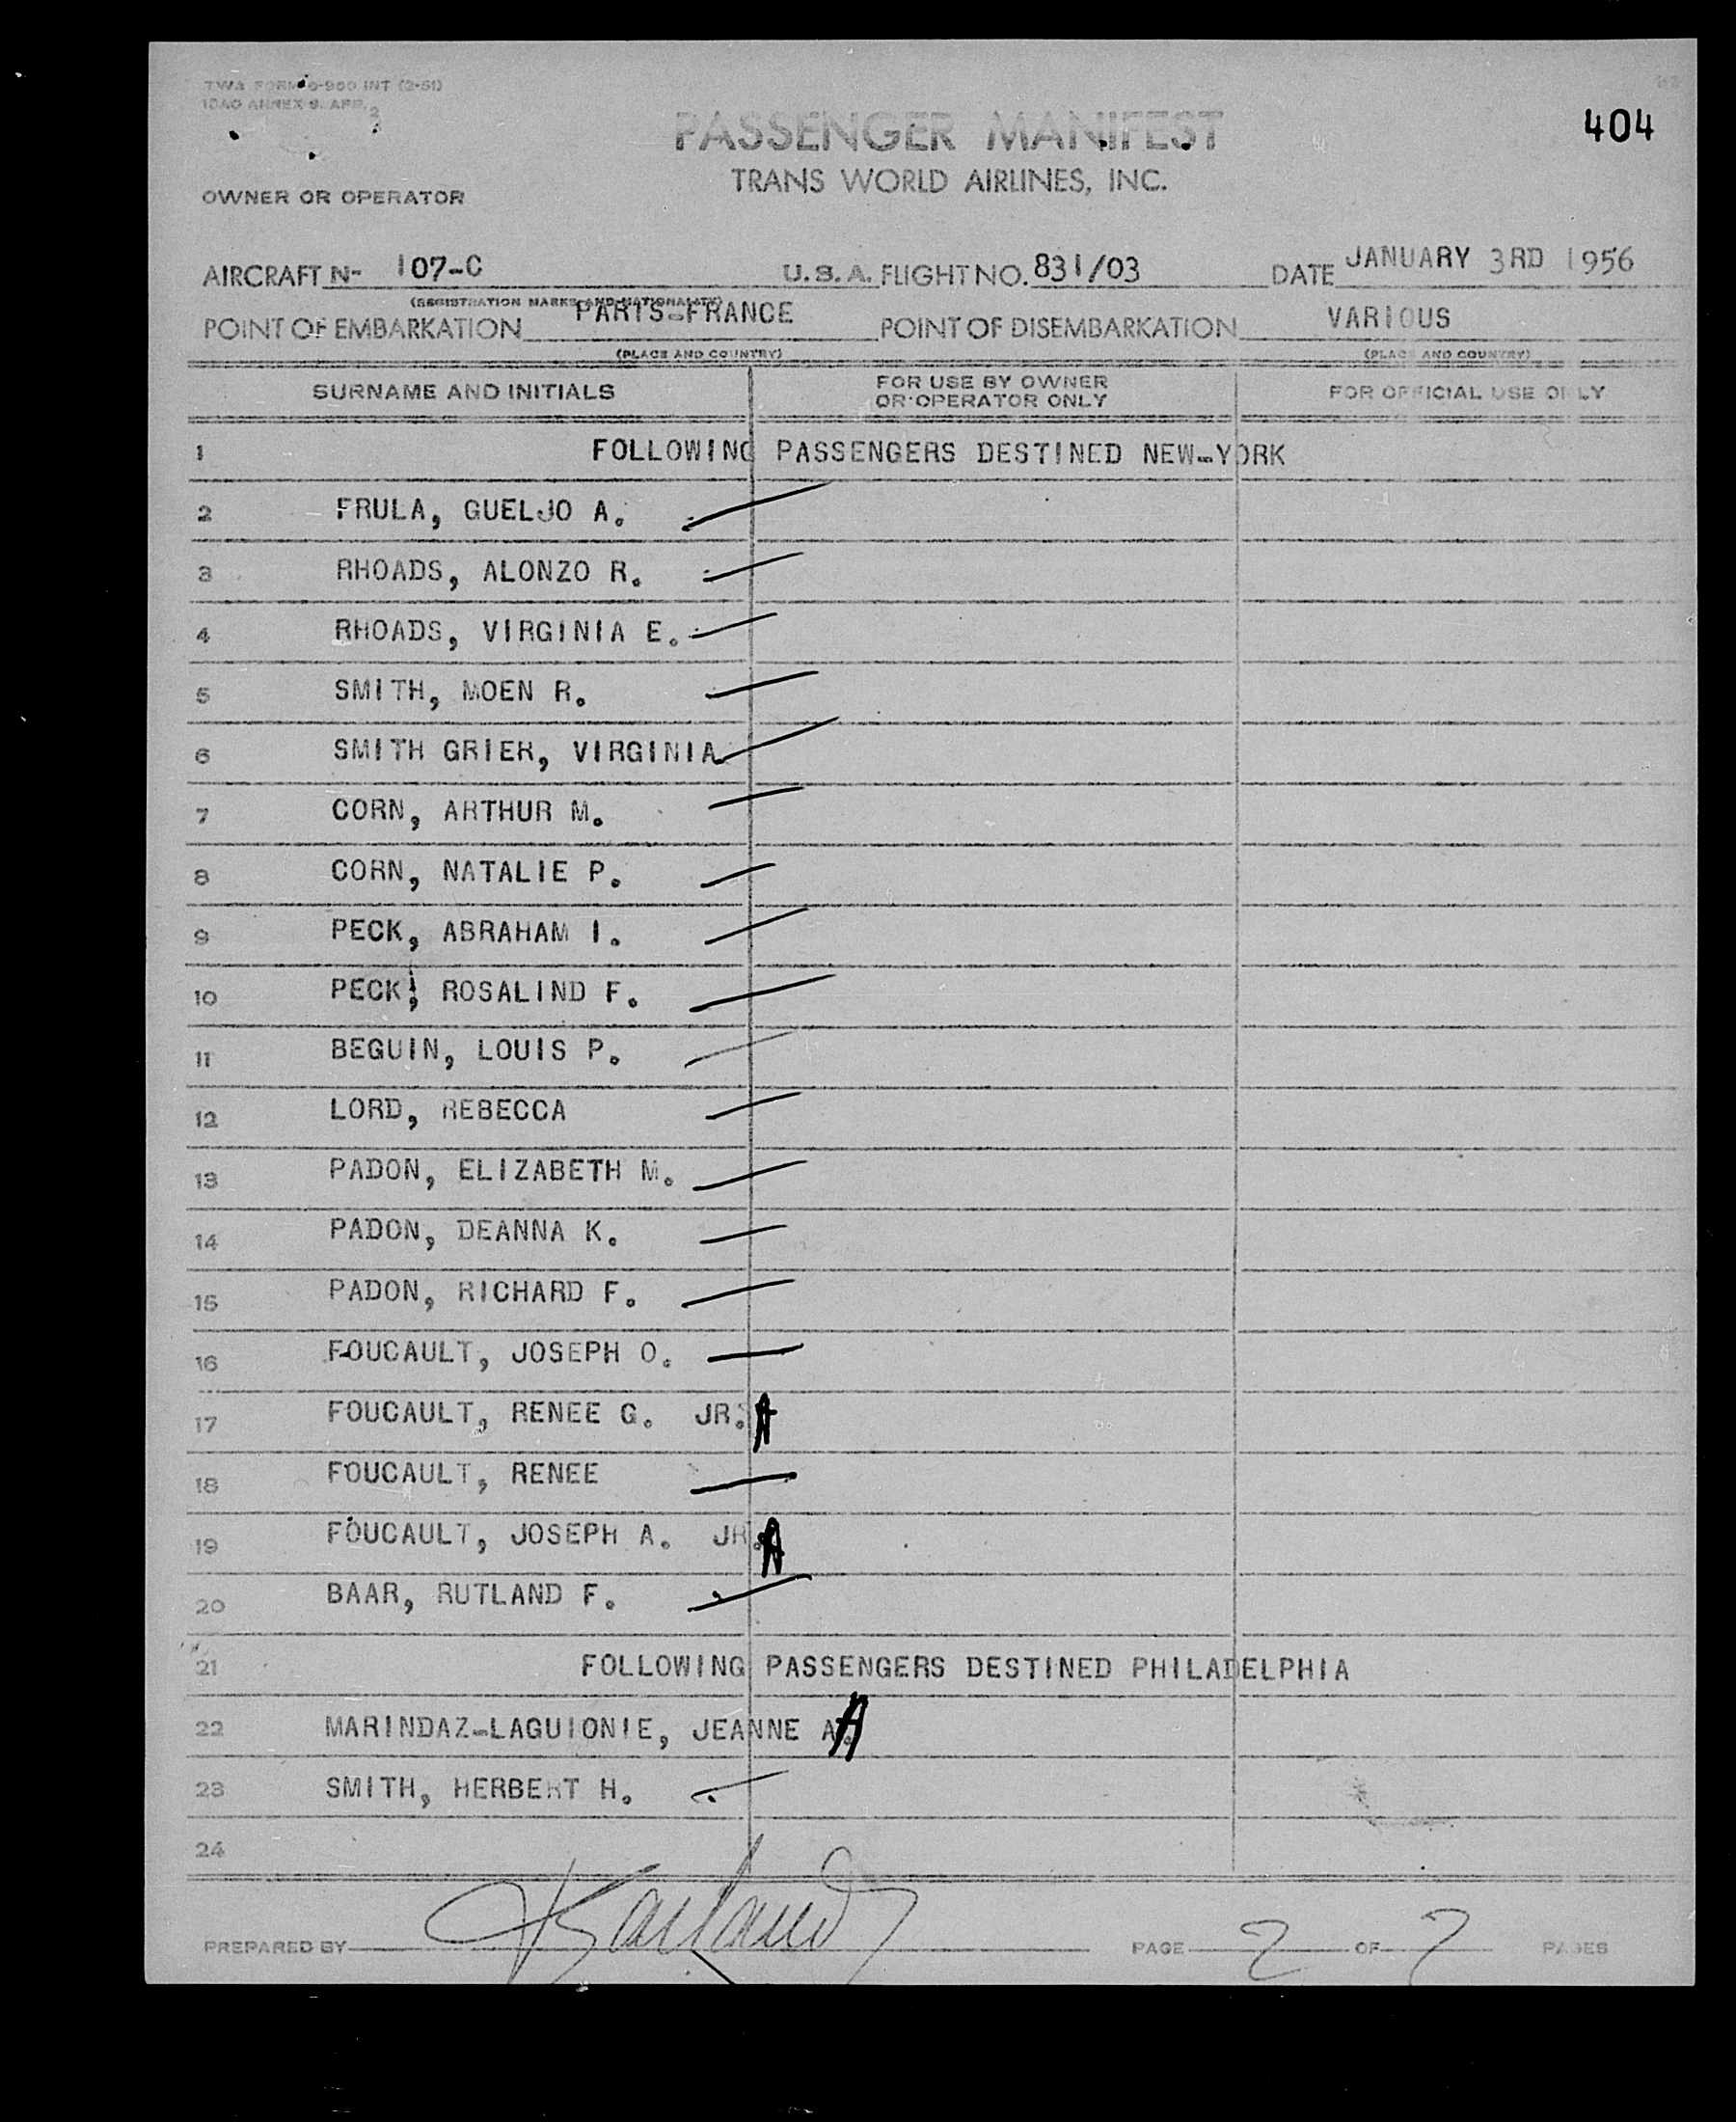 TWA FORM 0-950 INT (2-51)
ICAO ANNEX 9. APP. 2
404
PASSENGER MANIFEST
TRANS WORLD AIRLINES, INC.
OWNER OR OPERATOR
AIRCRAFT N- 107-C U.S.A. FLIGHT NO. 831/03 DATE JANUARY 3RD 1956
(REGISTRATION MARKS AND NATIONALITY)
POINT OF EMBARKATION PARIS-FRANCE POINT OF DISEMBARKATION VARIOUS
(PLACE AND COUNTRY) (PLACE AND COUNTRY)
SURNAME AND INITIALS FOR USE BY OWNER OR OPERATOR ONLY FOR OFFICIAL USE ONLY
1 FOLLOWING PASSENGERS DESTINED NEW-YORK
2 FRULA, GUELJO A.
3 RHOADS, ALONZO R.
4 RHOADS, VIRGINIA E.
5 SMITH, MOEN R.
6 SMITH GRIER, VIRGINIA
7 CORN, ARTHUR M.
8 CORN, NATALIE P.
9 PECK, ABRAHAM I.
10 PECK, ROSALIND F.
11 BEGUIN, LOUIS P.
12 LORD, REBECCA
13 PADON, ELIZABETH M.
14 PADON, DEANNA K.
15 PADON, RICHARD F.
16 FOUCAULT, JOSEPH O.
17 FOUCAULT, RENEE G. JR. A
18 FOUCAULT, RENEE
19 FOUCAULT, JOSEPH A. JR. A
20 BAAR, RUTLAND F.
21 FOLLOWING PASSENGERS DESTINED PHILADELPHIA
22 MARINDAZ-LAGUIONIE, JEANNE A. A
23 SMITH, HERBERT H.
24
PREPARED BY PAGE 2 OF 7 PAGES